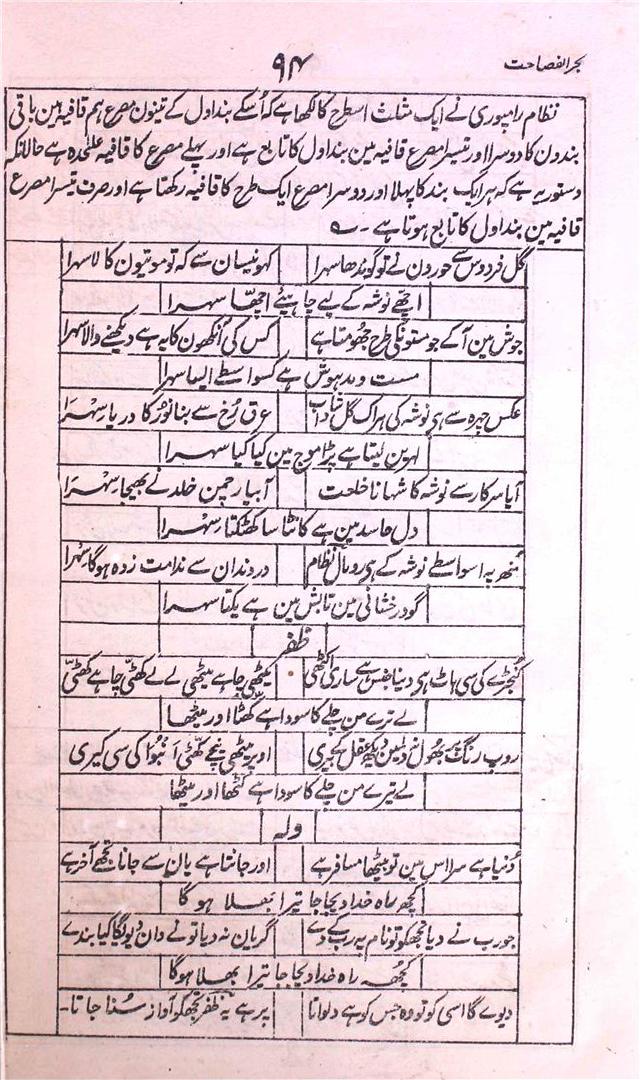 بحر الفصاحت
۹۴
نظام رامپوری نے ایک مثلث اسطرح کا لکھا ہے کہ اُسکے بند اول کے تینون مصرع ہم قافیہ مین باقی
بندون کا دوسرا اور تیسرا مصرع قافیہ مین بند اول کا تابع ہے اور پہلے مصرع کا قافیہ علٰحدہ ہے حالانکہ
دستور یہ ہے کہ ہر ایک بند کا پہلا اور دوسرا مصرع ایک طرح کا قافیہ رکھتا ہے اور صرف تیسرا مصرع
قافیہ مین بند اول کا تابع ہوتا ہے ۔
گل فردوس سے حورون نے تو گوندھا سہرا کہو نیسان سے کہ تو موتیون کا لا سہرا
اچھے نوشہ کے لیے چاہیئے اچھّا سہرا
جوش مین آ کے جو مستونکی طرح جھُومتا ہے کس کی آنکھون کا یہ ہے دیکھنے والا سہرا
مست و مدہوش ہے کسواسطے ایسا سہرا
عکس چہرہ سے ہی نوشہ کی ہر اک گل شاداب عرق رُخ سے بنا نُور کا دریا سِہرَا
لہرین لیتا ہے پڑا موج مین کیا کیا سہرا
آیا سرکار سے نوشہ کا شہانا خلعت آبیار چمن خلد نے بھیجا سِہرَا
دل حاسد مین ہے کانٹا سا کھٹکتا سِہرا
مُنھ پہ اسواسطے نوشہ کے ہی رومال نظام در دندان سے ندامت زدہ ہو گا سہرا
گو درخشانی مین تابش مین ہے یکتا سہرا
ظفر
کُنجڑے کی سی ہاٹ ہی دینا جنس ہے ساری اکٹھی میٹھی چاہے میٹھی لے لے کھٹّی چاہے کھٹّی
لے ترے من چلے کا سودا ہے کھٹّا اور میٹھا
روپ رنگ پر بھُول نہ دلمین دیکھ عقل کے بیری اوپر میٹھی نیچے کھٹّی اَنبُوا کی سی کیری
لے تیرے من چلے کا سودا ہے کھٹّا اور میٹھا
ولہ
دُنیا ہے سرا اس مین تو بیٹھا مسافر ہے اور جانتا ہے یان سے جانا تجھے آخر ہے
کچھ راہ خدا دیجا جا تیرا بھلا ہو گا
جو رب نے دیا تجھکو تو نام پہ رب کے دے گر یان نہ دیا تو نے وان دیویگا کیا بندے
کچھ راہ خدا دیجا جا تیرا بھلا ہوگا
دیوے گا اسی کو تو وہ جس کو ہے دلواتا پر ہے یہ ظفر تجھکو آواز سُنا جاتا۔